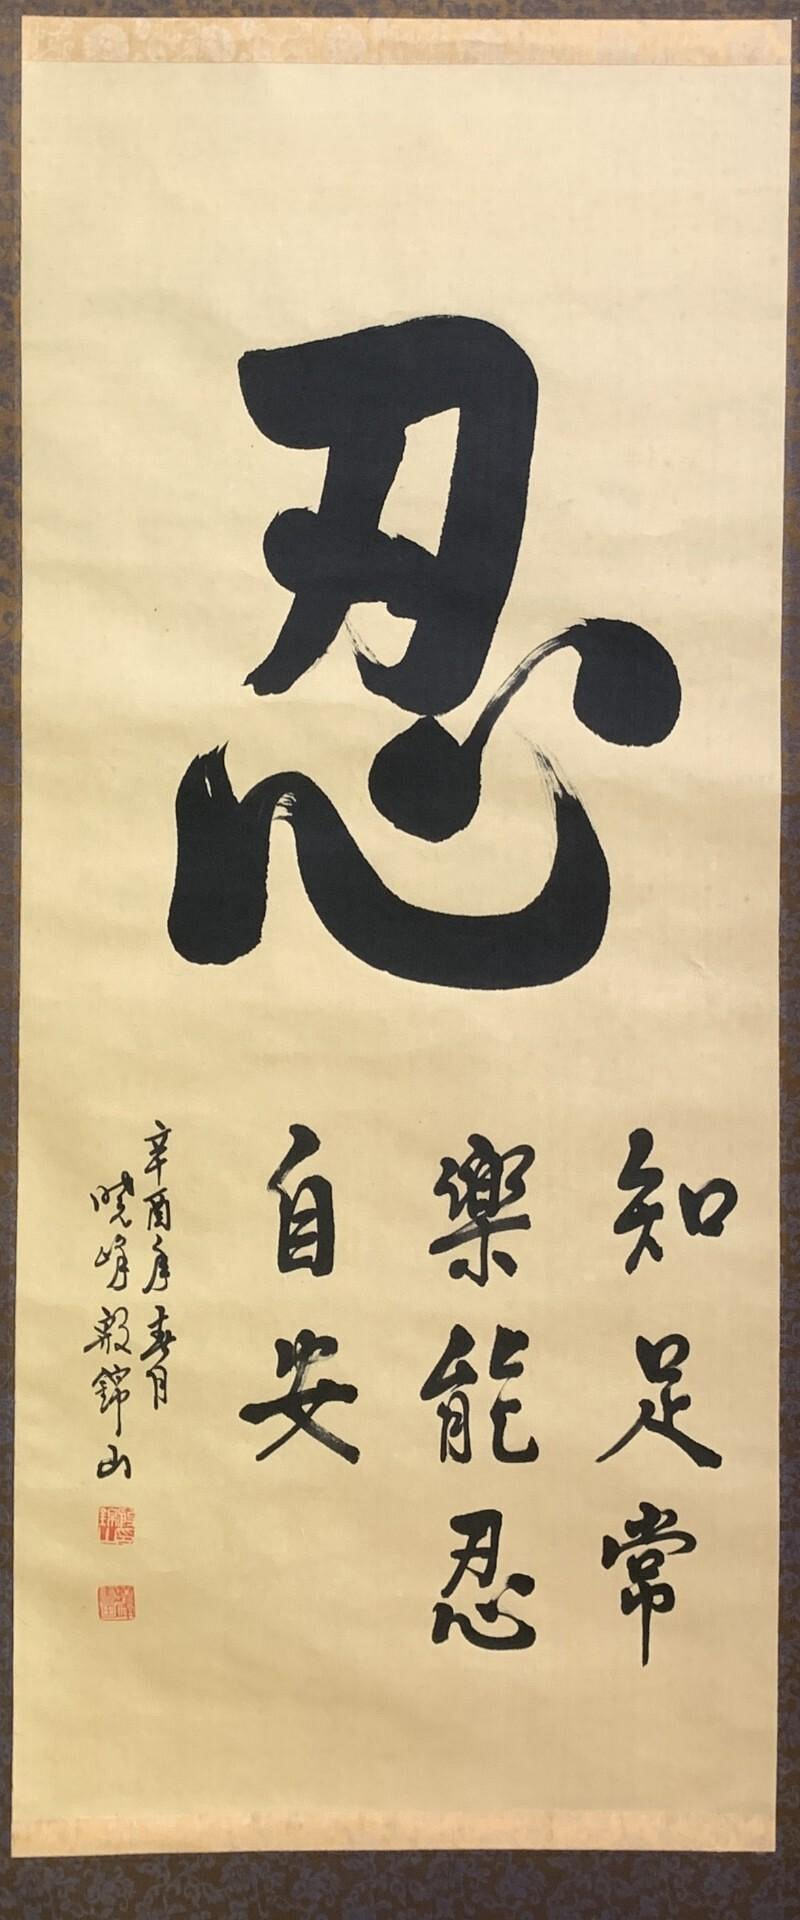 忍
知足常
樂能忍
自安
辛酉年春月
曉峰殷錦山